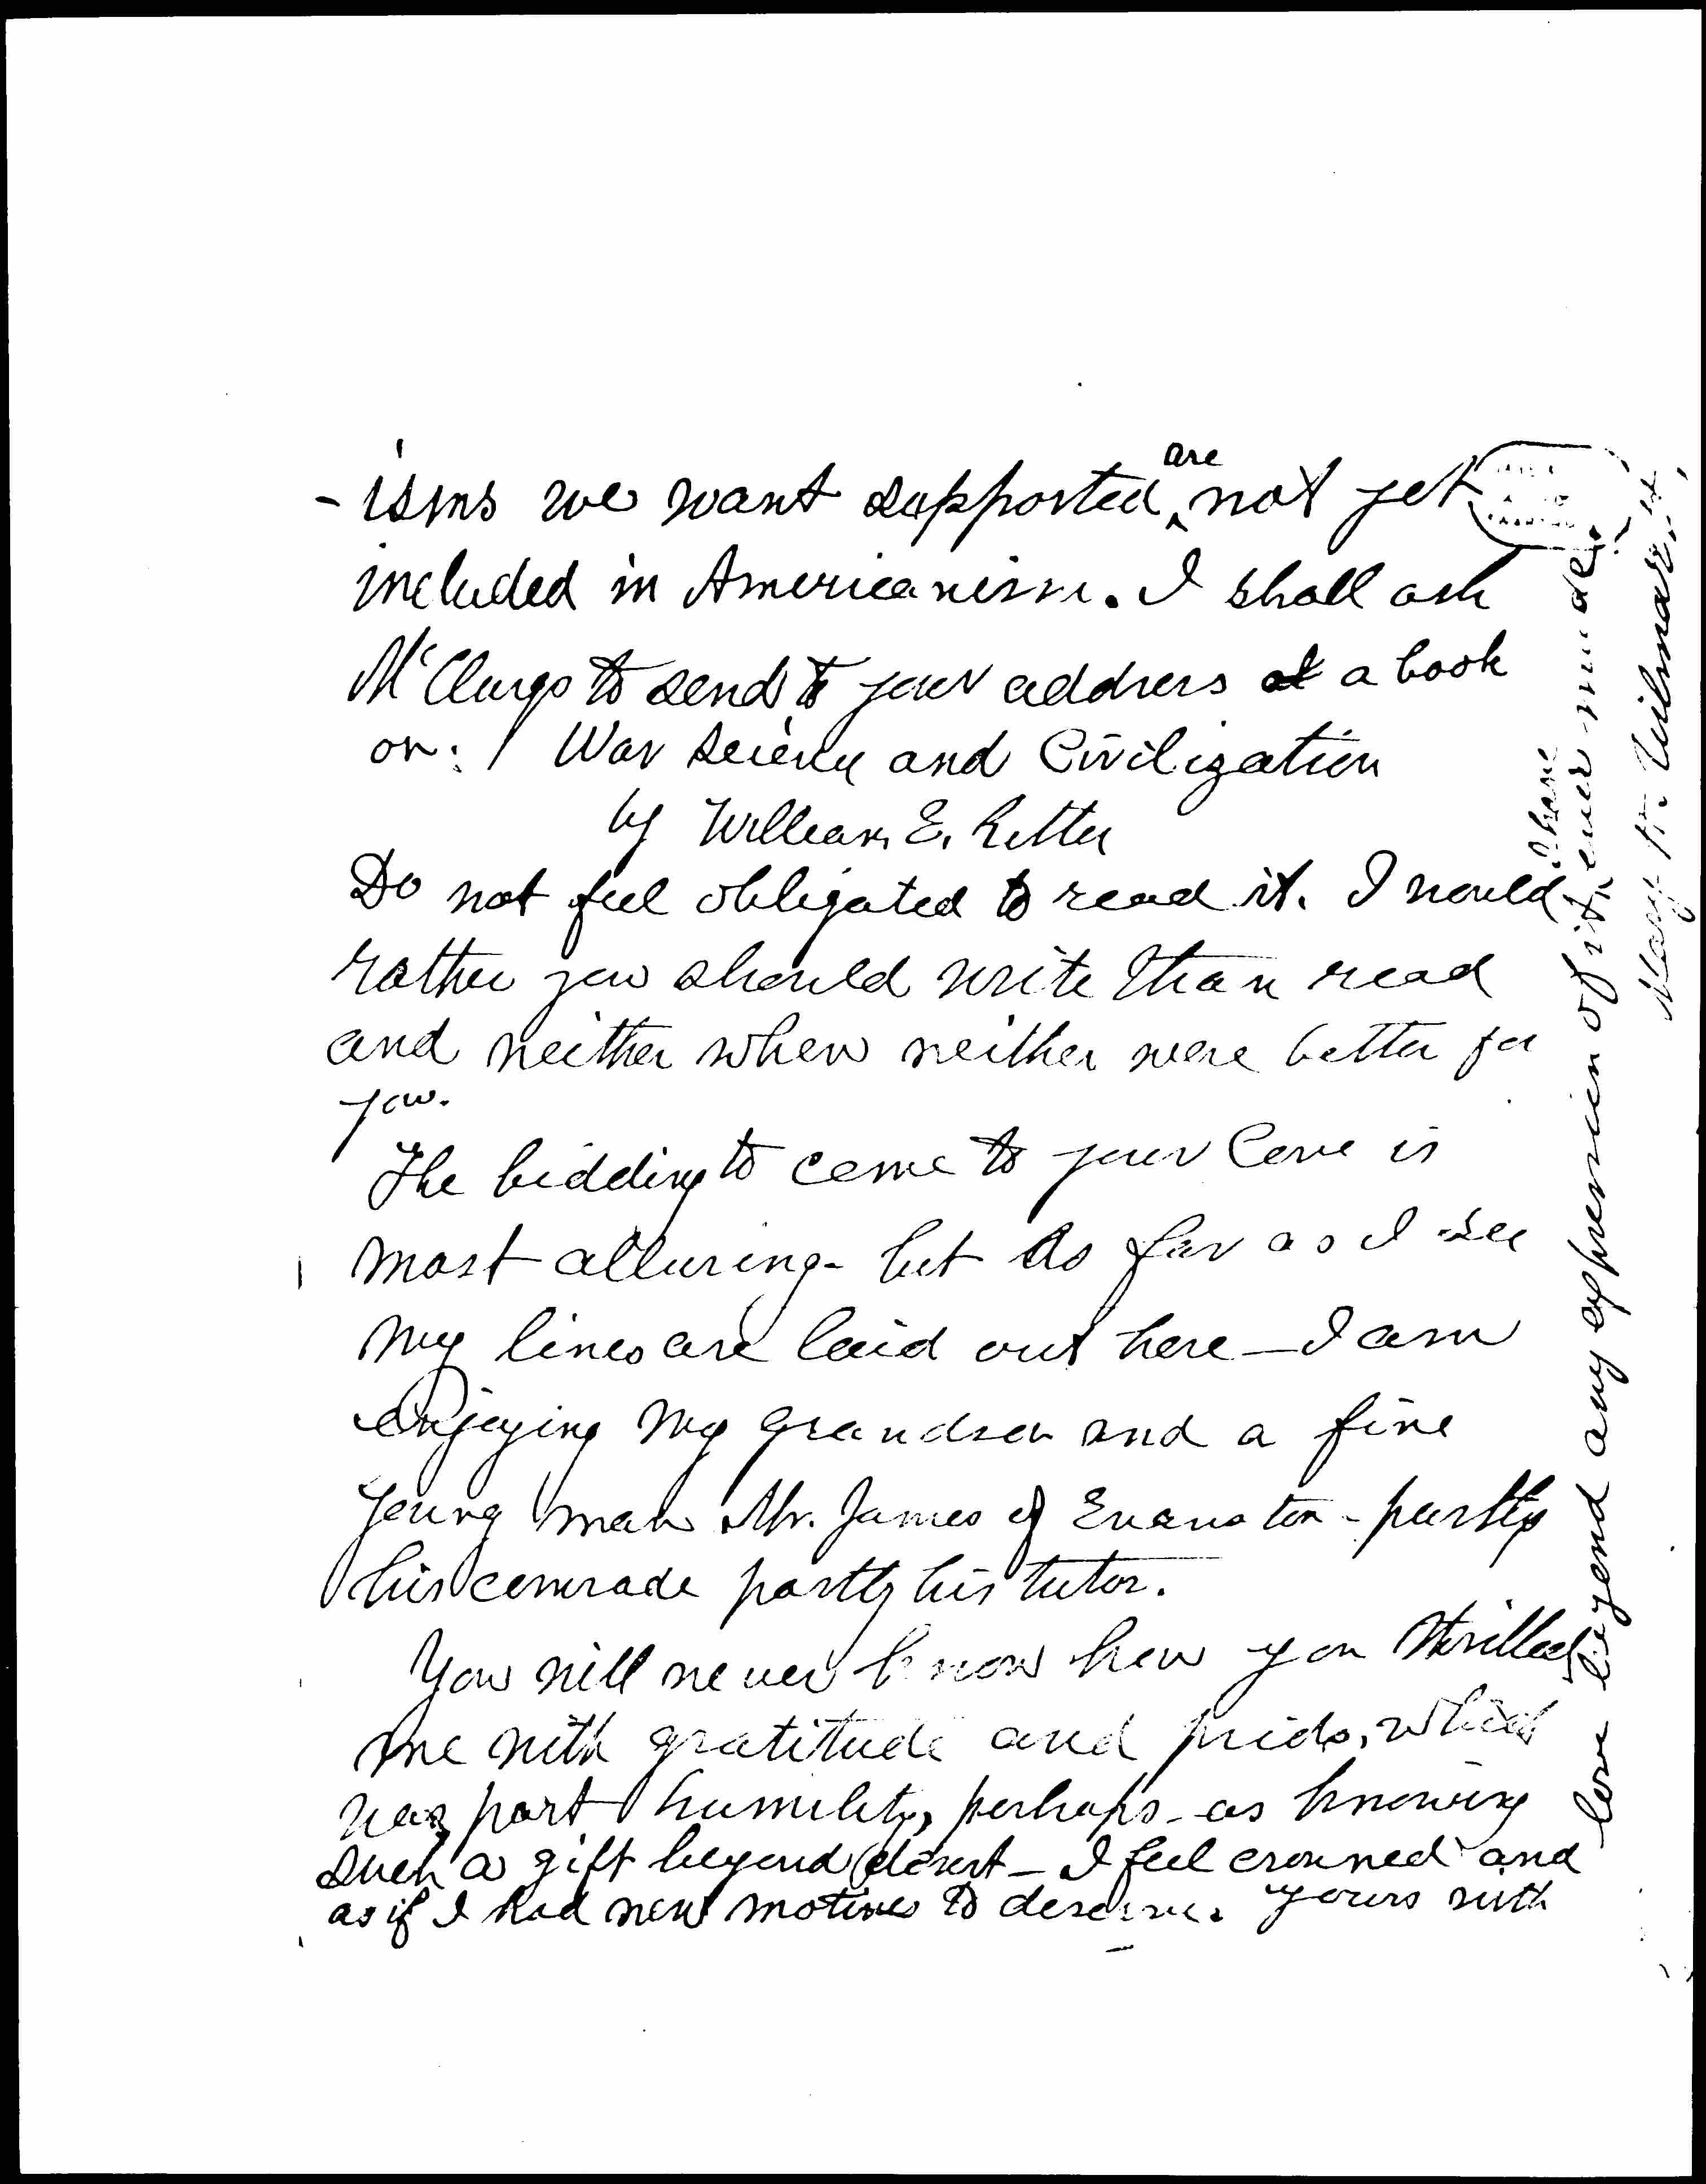 - isms we want supported are not yet
included in Americanism. I shall ask
McClurgs to send to your address a book
on: War Science and Civilization
by William E. Ritter
Do not feel obligated to read it. I would
rather you should write than read
and neither when neither were better for
you.
The bidding to come to your Cove is
most alluring - but as far as I see
my lines are laid out here - I am
enjoying my grandson and a fine
young man Mr. James of Evanston - partly
his comrade partly his tutor.
You will never know how you thrilled
me with gratitude and pride, which
was part humility, perhaps - as knowing
such a gift beyond desert - I feel crowned and
as if I had new motives to deserve. Yours with
love beyond any expression of it, I have ever made.
Mary H. Wilmarth